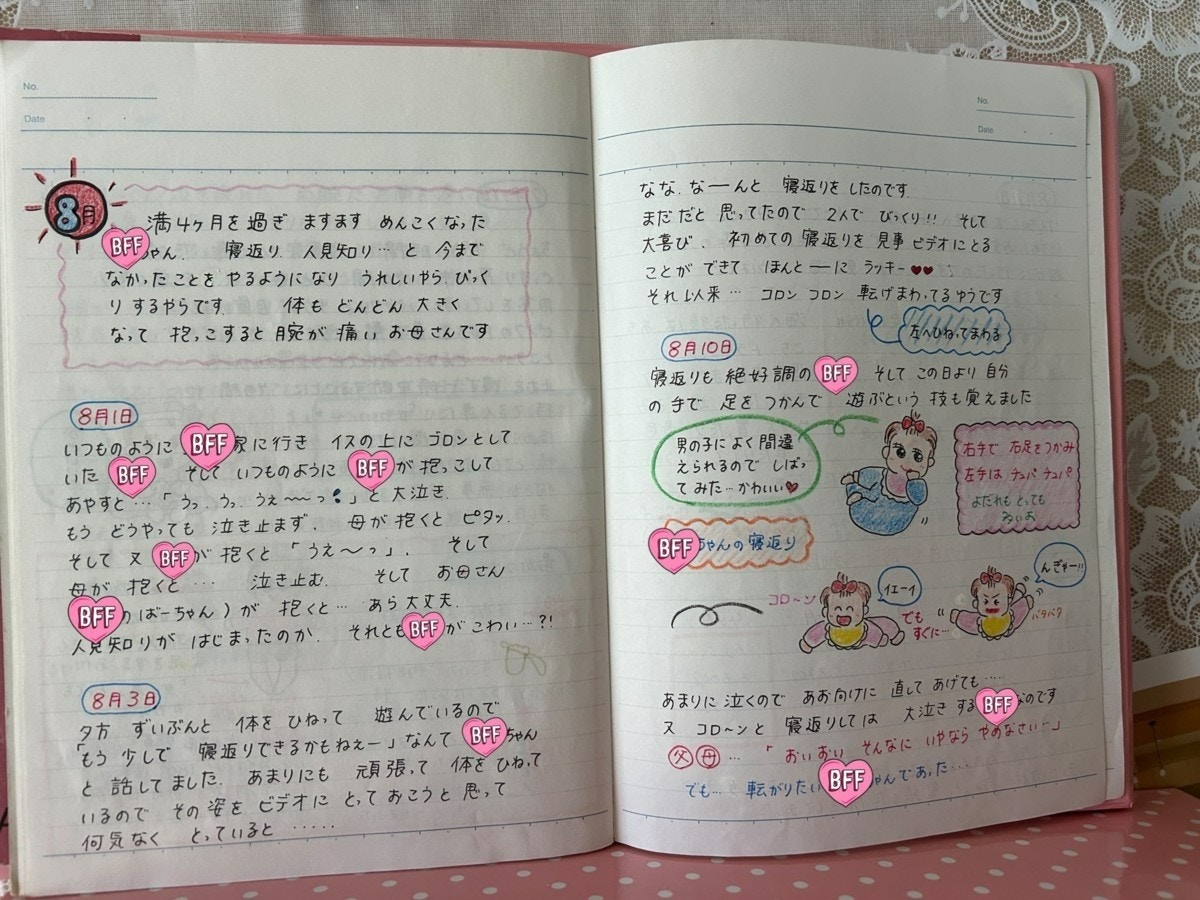 No.
Date
8月
満4ヶ月を過ぎ ますます めんこくなった
BFFちゃん. 寝返り. 人見知り…と 今まで
なかったことを やるようになり うれしいやら びっく
りするやらです. 体も どんどん 大きく
なって 抱っこすると 腕が 痛い お母さんです
8月1日
いつものように BFF家に行き イスの上に ゴロンとして
いた BFF そして いつものように BFFが 抱っこして
あやすと…「うっ. うっ. うぇ〜〜っ」と 大泣き.
もう どうやっても 泣き止まず. 母が 抱くと ピタッ.
そして 又 BFFが 抱くと「うえ〜っ」. そして
母が 抱くと… 泣き止む. そして お母さん
BFFのばーちゃん)が 抱くと… あら大丈夫.
人見知りが はじまったのか. それともBFFが こわい…?!
8月3日
夕方 ずいぶんと 体を ひねって 遊んでいるので
「もう 少しで 寝返りできるかもねぇー」なんて BFFちゃん
と 話してました. あまりにも 頑張って 体を ひねって
いるので その姿を ビデオに とっておこうと 思って
何気なく とっていると ‥‥‥
No.
Date
なな. なーんと 寝返りを したのです.
まだだと 思ってたので 2人で びっくり!! そして
大喜び. 初めての 寝返りを 見事 ビデオにとる
ことが できて ほんとーに ラッキー♥♥
それ以来… コロン コロン 転げまわってるゆうです
左へひねってまわる
8月10日
寝返りも 絶好調の BFF そして この日より 自分
の 手で 足を つかんで 遊ぶという 技も覚えました
男の子に よく 間違
えられるので しばっ
てみた…かわいい♥
右手で 右足をつかみ
左手は チュパ チュパ
よだれも とっても
BFFちゃんの 寝返り
コロ〜ン
イエーイ
でも
すぐに…
んぎゃー!!
バタバタ
あまりに 泣くので あお向けに 直して あげても‥‥
又 コロ〜ンと 寝返りしては 大泣き するBFFなのです
父 母 …「おいおい そんなに いやなら やめなさい…」
でも… 転がりたいBFFちゃんであった…